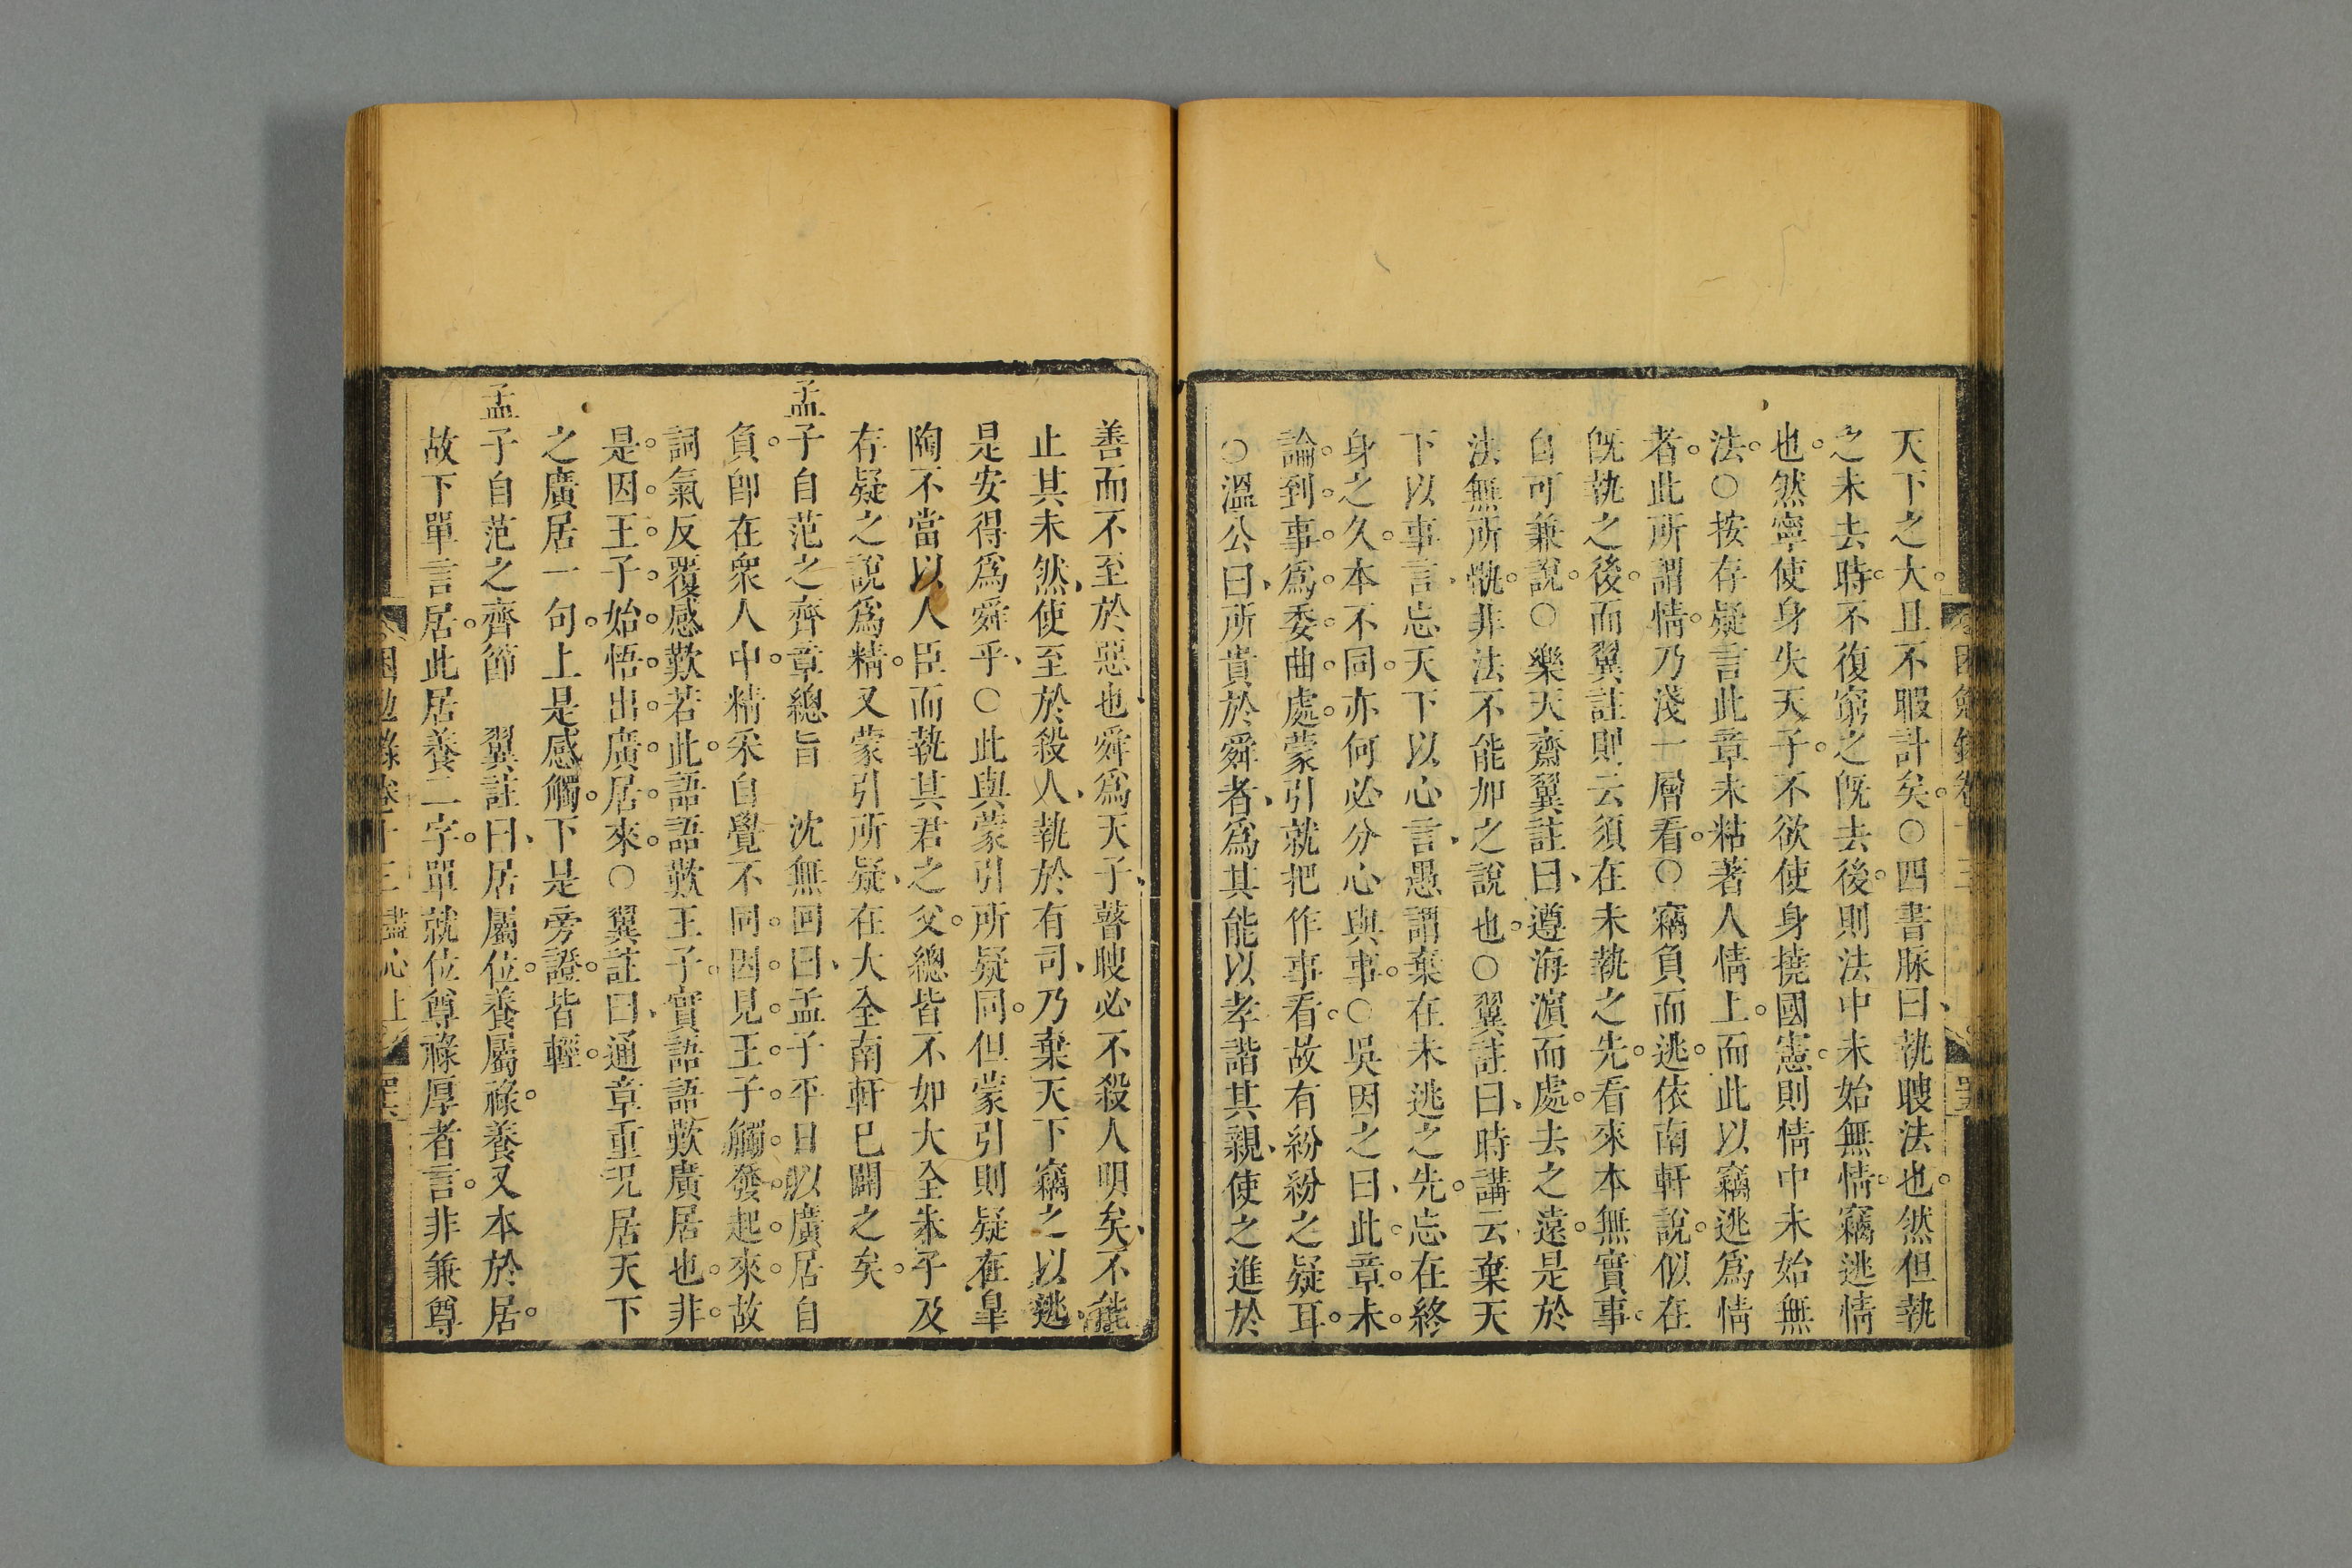 天下之大且不暇計矣○四書脉曰執瞍法也然但執
之未去時不復窮之旣去後則法中未始無情竊逃情
也然寧使身失天子不欲使身撓國憲則情中未始無
法○按存疑言此章未粘著人情上而此以竊逃爲情
者此所謂情乃淺一層看○竊負而逃依南軒說似在
旣執之後而翼註則云須在未執之先看來本無實事
自可兼說○樂天齋翼註曰遵海濵而處去之遠是於
法無所執非法不能加之說也○翼註曰時講云棄天
下以事言忘天下以心言愚謂棄在未逃之先忘在終
身之久本不同亦何必分心與事○吳因之曰此章未
論到事爲委曲處蒙引就把作事看故有紛紛之疑耳
○溫公曰所貴於舜者爲其能以孝諧其親使之進於
善而不至於惡也舜爲天子瞽瞍必不殺人明矣不能
止其未然使至於殺人執於有司乃棄天下竊之以逃
是安得爲舜乎○此與蒙引所疑同但蒙引則疑在臯
陶不當以人臣而執其君之父總皆不如大全朱子及
存疑之說爲精又蒙引所疑在大全南軒已闢之矣
孟子自范之齊章總旨 沈無回曰孟子平日以廣居自
負卽在衆人中精采自覺不同因見王子觸發起來故
詞氣反覆感歎若此語語歎王子實語語歎廣居也非
是因王子始悟出廣居來○翼註曰通章重況居天下
之廣居一句上是感觸下是旁證皆輕
孟子自范之齊節 翼註曰居屬位養屬祿養又本於居
故下單言居此居養二字單就位尊祿厚者言非兼尊
困勉錄卷十三 盡心上